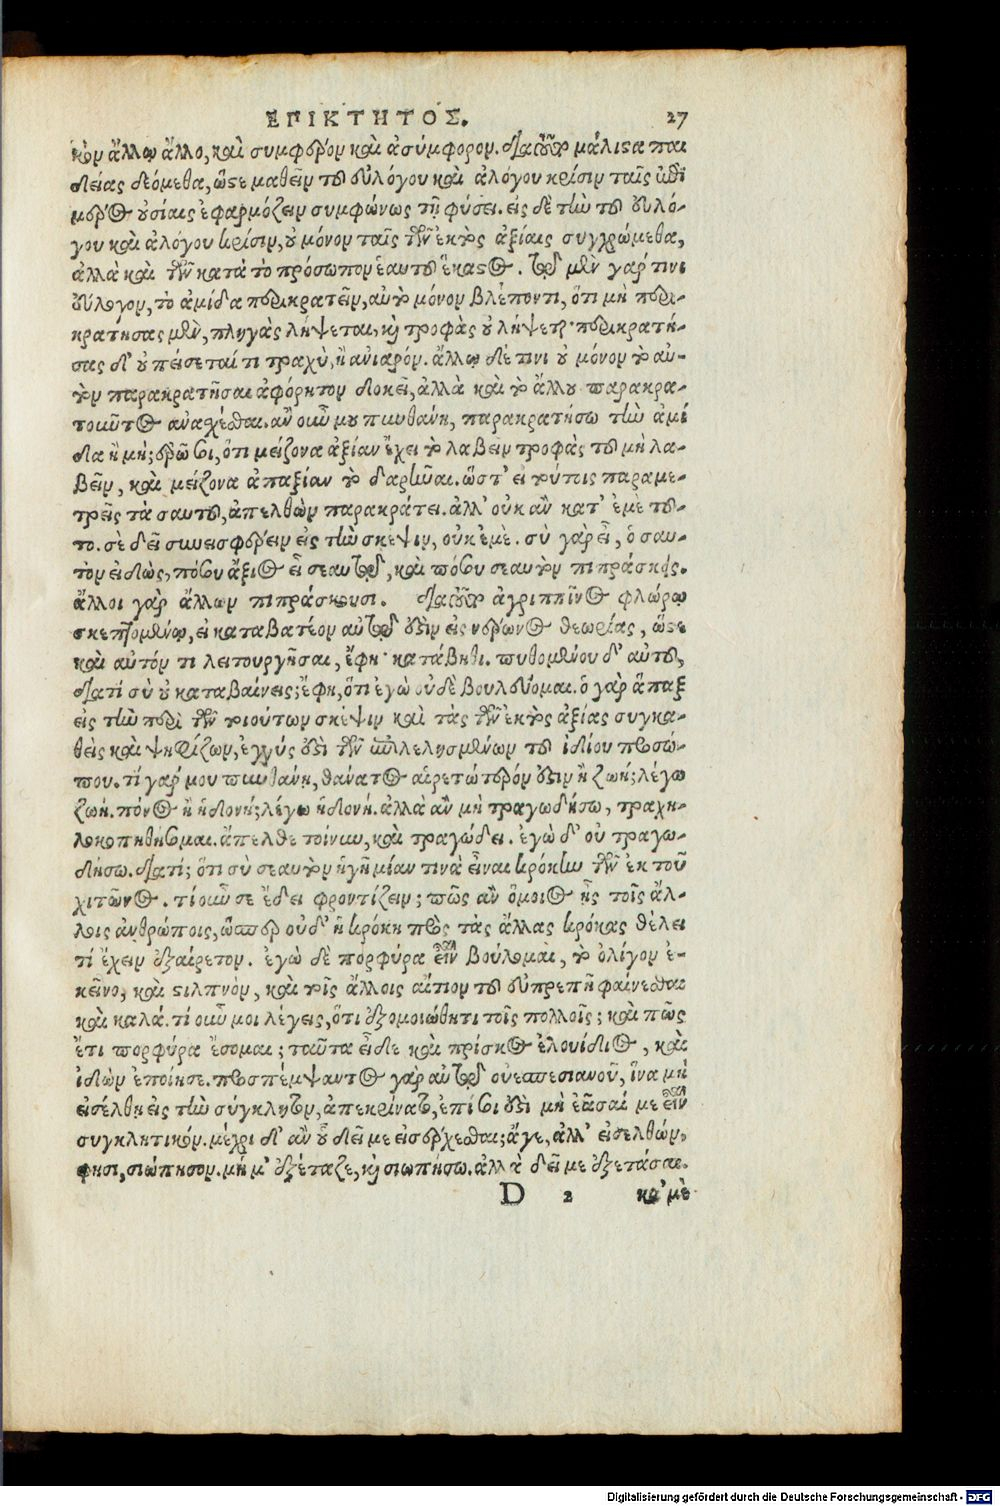 ΕΠΙΚΤΗΤΟΣ. 27
κὸν ἄλλῳ ἄλλο, καὶ συμφέρον καὶ ἀσύμφορον. διατοῦτο μάλιστα παι
δείας δεόμεθα, ὥστε μαθεῖν τοῦ εὐλόγου καὶ ἀλόγου κρίσιν ταῖς ἐπὶ
μέρος οὐσίαις ἐφαρμόζειν συμφώνως τῇ φύσει. εἰς δὲ τὴν τοῦ εὐλό-
γου καὶ ἀλόγου κρίσιν, οὐ μόνον ταῖς τῶν ἐκτὸς ἀξίαις συγχρώμεθα,
ἀλλὰ καὶ τῶν κατὰ τὸ πρόσωπον ἑαυτοῦ ἕκαστος. τῷ μὲν γάρ τινι
εὔλογον, τὸ ἀμίδα παρακρατεῖν, αὐτὸ μόνον βλέποντι, ὅτι μὴ παρα-
κρατήσας μὲν, πληγὰς λήψεται, καὶ τροφὰς οὐ λήψεται· παρακρατή-
σας δ' οὐ πείσεταί τι τραχὺ, ἢ ἀνιαρόν. ἄλλῳ δέ τινι οὐ μόνον τὸ αὐ-
τὸν παρακρατῆσαι ἀφόρητον δοκεῖ, ἀλλὰ καὶ τὸ ἄλλου παρακρα-
τοῦντος ἀνασχέσθαι. ἂν οὖν μου πυνθάνῃ, παρακρατήσω τὴν ἀμί
δα ἢ μή; ἐρῶ σοι, ὅτι μείζονα ἀξίαν ἔχει τὸ λαβεῖν τροφὰς τοῦ μὴ λα-
βεῖν, καὶ μείζονα ἀπαξίαν τὸ δαρῆναι. ὥστ' εἰ τούτοις παραμε-
τρεῖς τὰ σαυτοῦ, ἀπελθὼν παρακράτει. ἀλλ' οὐκ ἂν κατ' ἐμὲ τοῦ-
το. σὲ δεῖ συνεισφέρειν εἰς τὴν σκέψιν, οὐκ ἐμέ. σὺ γὰρ εἶ, ὁ σαυ-
τὸν εἰδὼς, πόσου ἄξιος εἶ σεαυτῷ, καὶ πόσου σεαυτὸν πιπράσκεις.
ἄλλοι γὰρ ἄλλων πιπράσκουσι. διατοῦτο ἀγριππῖνος φλώρῳ
σκεπτομένῳ, εἰ καταβατέον αὐτῷ ἐστὶν εἰς νέρωνος θεωρίας, ὥστε
καὶ αὐτόν τι λειτουργῆσαι, ἔφη· κατάβηθι. πυθομένου δ' αὐτοῦ,
διατί σὺ οὐ καταβαίνεις; ἔφη, ὅτι ἐγὼ οὐδὲ βουλεύομαι. ὁ γὰρ ἅπαξ
εἰς τὴν περὶ τῶν τοιούτων σκέψιν καὶ τὰς τῶν ἐκτὸς ἀξίας συγκα-
θεὶς καὶ ψηφίζων, ἐγγύς ἐστι τῶν ἐπιλελησμένων τοῦ ἰδίου προσώ-
που. τί γάρ μου πυνθάνῃ, θάνατος αἱρετώτερόν ἐστιν ἢ ζωή; λέγω
ζωή. πόνος ἢ ἡδονή; λέγω ἡδονή. ἀλλὰ ἂν μὴ τραγωδήσω, τραχη-
λοκοπηθήσομαι. ἄπελθε τοίνυν, καὶ τραγώδει. ἐγὼ δ' οὐ τραγω-
δήσω. διατί; ὅτι σὺ σεαυτὸν ἡγῇ μίαν τινὰ εἶναι κρόκην τῶν ἐκ τοῦ
χιτῶνος. τί οὖν σε ἔδει φροντίζειν; πῶς ἂν ὅμοιος ᾖς τοῖς ἄλ-
λοις ἀνθρώποις, ὥσπερ οὐδ' ἡ κρόκη πρὸς τὰς ἄλλας κρόκας θέλει
τί ἔχειν ἐξαίρετον. ἐγὼ δὲ πορφύρα εἶναι βούλομαι, τὸ ὀλίγον ἐ-
κεῖνο, καὶ στιλπνὸν, καὶ τοῖς ἄλλοις αἴτιον τοῦ εὐπρεπῆ φαίνεσθαι
καὶ καλά. τί οὖν μοι λέγεις, ὅτι ἐξομοιώθητι τοῖς πολλοῖς; καὶ πῶς
ἔτι πορφύρα ἔσομαι; ταῦτα εἶδε καὶ πρίσκος ἑλουίδιος, καὶ
ἰδὼν ἐποίησε. προσπέμψαντος γὰρ αὐτῷ οὐεσπεσιανοῦ, ἵνα μὴ
εἰσέλθῃ εἰς τὴν σύγκλητον, ἀπεκρίνατο, ἐπί σοι ἐστὶ μὴ ἐᾶσαί με εἶναι
συγκλητικόν. μέχρι δ' ἂν ὦ δεῖ με εἰσέρχεσθαι; ἄγε, ἀλλ' εἰσελθὼν,
φησι, σιώπησον. μή μ' ἐξέταζε, καὶ σιωπήσω. ἀλλὰ δεῖ με ἐξετάσαι.
D 2 κἀμὲ
Digitalisierung gefördert durch die Deutsche Forschungsgemeinschaft - DFG